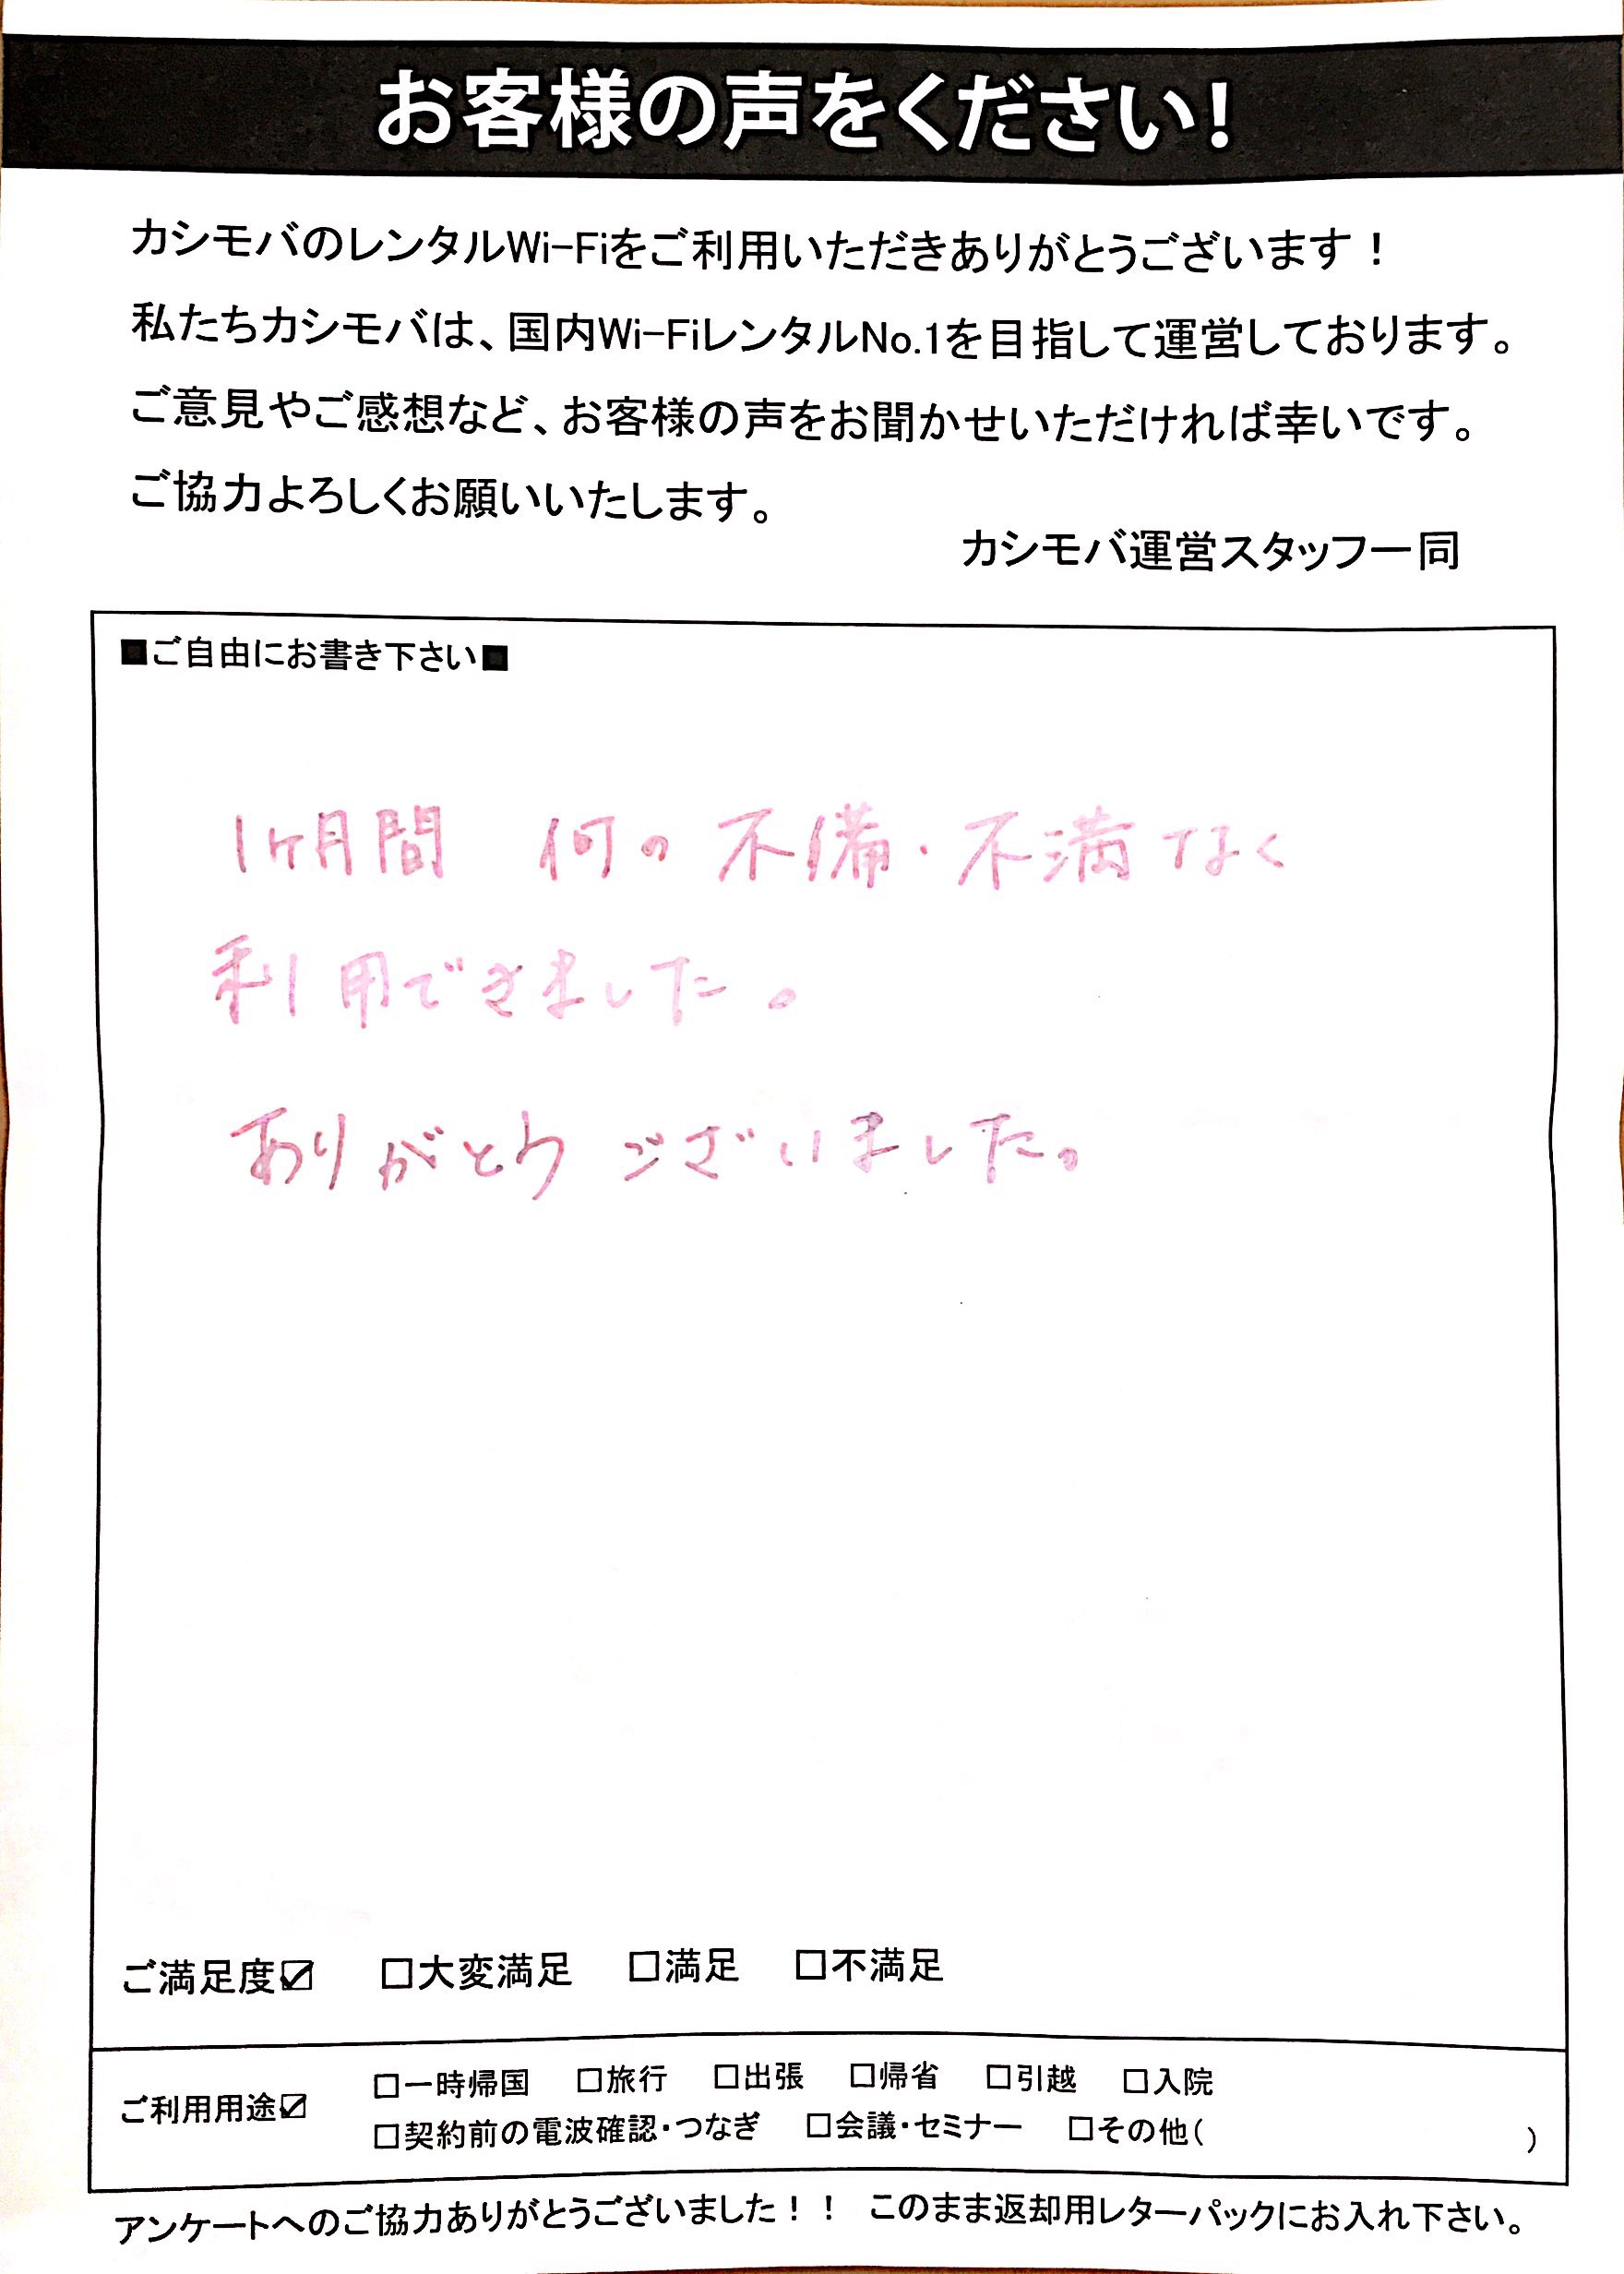 お客様の声をください!
カシモバのレンタルWi-Fiをご利用いただきありがとうございます！
私たちカシモバは、国内Wi-FiレンタルNo.1を目指して運営しております。
ご意見やご感想など、お客様の声をお聞かせいただければ幸いです。
ご協力よろしくお願いいたします。
カシモバ運営スタッフ一同
■ご自由にお書き下さい■
1ヶ月間 何の不備・不満なく
利用できました。
ありがとうございました。
ご満足度☑ □大変満足 □満足 □不満足
ご利用用途☑ □一時帰国 □旅行 □出張 □帰省 □引越 □入院
□契約前の電波確認・つなぎ □会議・セミナー □その他( )
アンケートへのご協力ありがとうございました！！ このまま返却用レターパックにお入れ下さい。